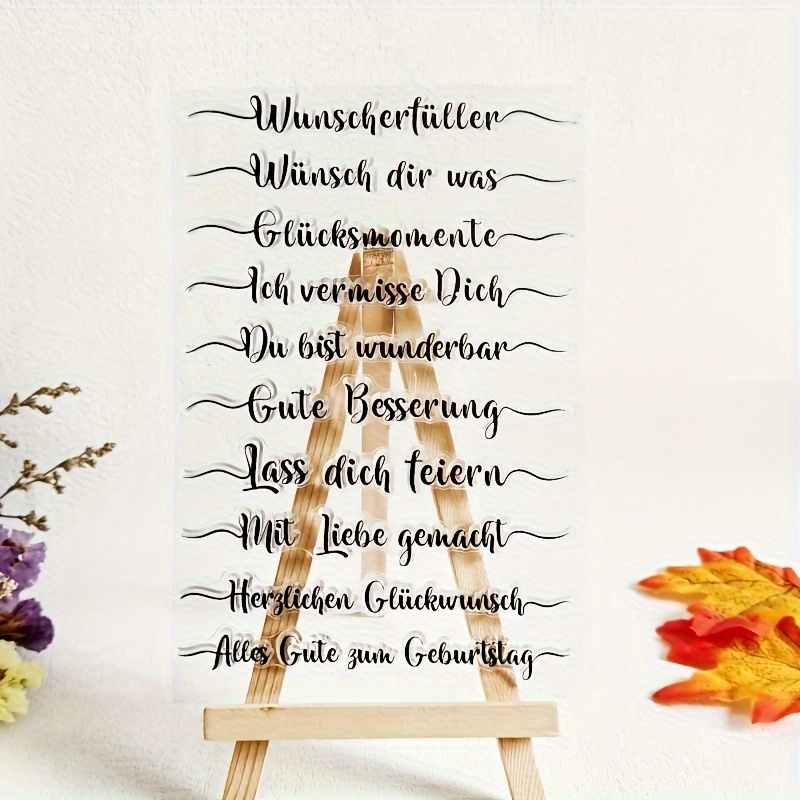 Wunscherfüller
Wünsch dir was
Glücksmomente
Ich vermisse Dich
Du bist wunderbar
Gute Besserung
Lass dich feiern
Mit Liebe gemacht
Herzlichen Glückwunsch
Alles Gute zum Geburtstag